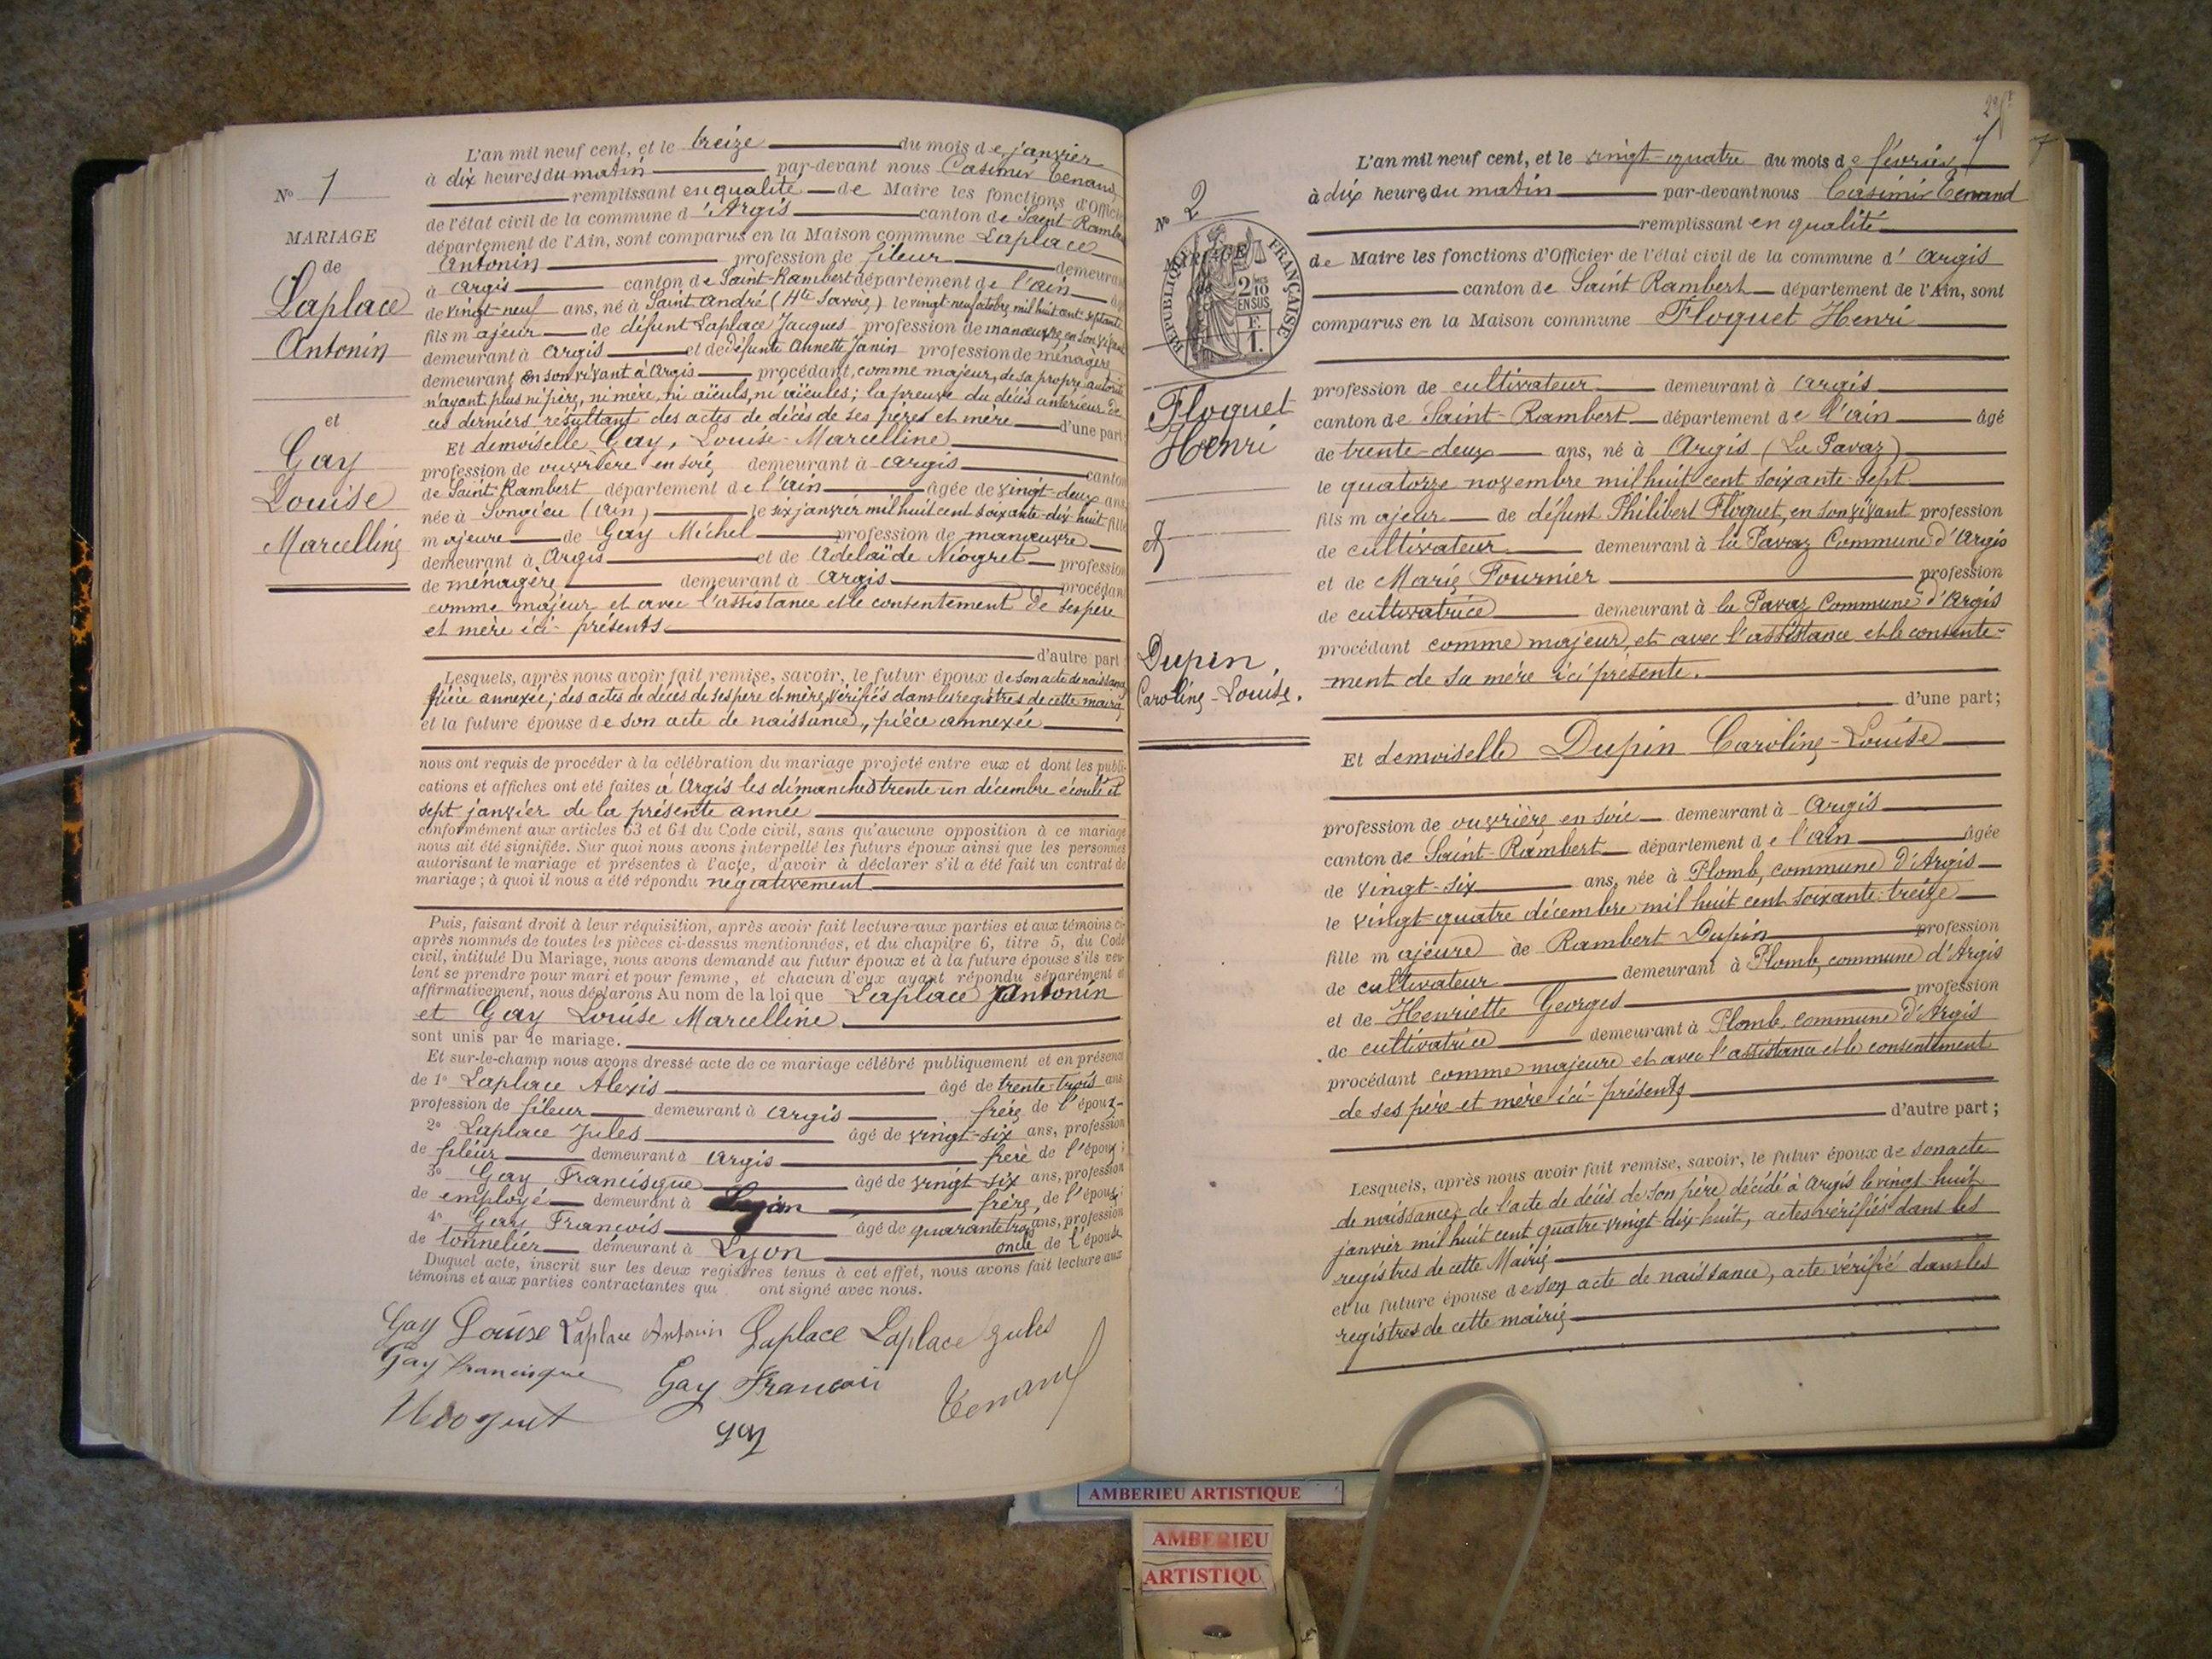 N° 1
MARIAGE
de
Laplace
Antonin
et
Gay
Louise
Marcelline
L'an mil neuf cent, et le treize du mois de janvier
à dix heures du matin par-devant nous Casimir Tenand
remplissant en qualité de Maire les fonctions d'Officier
de l'état civil de la commune d'Argis canton de Saint-Rambert
département de l'Ain, sont comparus en la Maison commune Laplace
Antonin profession de fileur demeurant
à Argis canton de Saint-Rambert département de l'ain
de vingt-neuf ans, né à Saint André (Hte Savoie) le vingt-neuf octobre mil huit cent septante
fils majeur de défunt Laplace Jacques profession de manœuvre, en son vivant
demeurant à Argis et de défunte Annette Janin profession de ménagère
demeurant en son vivant à Argis procédant, comme majeur, de sa propre autorité
n'ayant plus ni père, ni mère, ni aïeuls, ni aïeules; la preuve du décès antérieur de
ces derniers résultant des actes de décès de ses pères et mère d'une part;
Et demoiselle Gay, Louise-Marcelline
profession de ouvrière en soie, demeurant à Argis canton
de Saint-Rambert département de l'ain âgée de vingt-deux ans
née à Songieu (Ain) le six janvier mil huit cent soixante-dix-huit fille
majeure de Gay Michel profession de manœuvre
demeurant à Argis et de Adélaïde Niogret profession
de ménagère demeurant à Argis procédant
comme majeur et avec l'assistance et le consentement de ses père
et mère ici-présents
d'autre part
Lesquels, après nous avoir fait remise, savoir, le futur époux de son acte de naissance
pièce annexée; des actes de décès de ses père et mère, vérifiés dans les registres de cette mairie
et la future épouse de son acte de naissance, pièce annexée
nous ont requis de procéder à la célébration du mariage projeté entre eux et dont les publi-
cations et affiches ont été faites à Argis les dimanches trente-un décembre écoulé et
sept janvier de la présente année
conformément aux articles 63 et 64 du Code civil, sans qu'aucune opposition à ce mariage
nous ait été signifiée. Sur quoi nous avons interpellé les futurs époux ainsi que les personnes
autorisant le mariage et présentes à l'acte, d'avoir à déclarer s'il a été fait un contrat de
mariage; à quoi il nous a été répondu négativement
Puis, faisant droit à leur réquisition, après avoir fait lecture aux parties et aux témoins ci-
après nommés de toutes les pièces ci-dessus mentionnées, et du chapitre 6, titre 5, du Code
civil, intitulé Du Mariage, nous avons demandé au futur époux et à la future épouse s'ils veu-
lent se prendre pour mari et pour femme, et chacun d'eux ayant répondu séparément et
affirmativement, nous déclarons Au nom de la loi que Laplace Antonin
et Gay Louise Marcelline
sont unis par le mariage.
Et sur-le-champ nous avons dressé acte de ce mariage célébré publiquement et en présence
de 1° Laplace Alexis âgé de trente-trois ans
profession de fileur demeurant à Argis frère de l'époux
2° Laplace Jules âgé de vingt-six ans, profession
de fileur demeurant à Argis frère de l'époux;
3° Gay Francisque âgé de vingt-six ans, profession
de employé demeurant à Lyon frère, de l'épouse;
4° Gay François âgé de quarante trois ans, profession
de tonnelier demeurant à Lyon oncle de l'épouse
Duquel acte, inscrit sur les deux registres tenus à cet effet, nous avons fait lecture aux
témoins et aux parties contractantes qui ont signé avec nous.
Gay Louise Laplace Antonin Laplace Laplace Jules
Gay francisque Gay François Tenand
Niogret gay
N° 2
MARIAGE
de
RÉPUBLIQUE FRANÇAISE
2 10
EN SUS
E.
1.
Floquet
Henri
et
Dupin,
Caroline-Louise.
L'an mil neuf cent, et le vingt-quatre du mois de février
à dix heures du matin par-devant nous Casimir Tenand
remplissant en qualité
de Maire les fonctions d'Officier de l'état civil de la commune d'Argis
canton de Saint Rambert département de l'Ain, sont
comparus en la Maison commune Floquet Henri
profession de cultivateur demeurant à Argis
canton de Saint-Rambert département de l'ain âgé
de trente-deux ans, né à Argis (La Pavaz)
le quatorze novembre mil huit cent soixante-sept
fils majeur de défunt Philibert Floquet, en son vivant profession
de cultivateur demeurant à la Pavaz Commune d'Argis
et de Marie Fournier profession
de cultivatrice demeurant à la Pavaz Commune d'Argis
procédant comme majeur, et avec l'assistance et le consente-
ment de sa mère ici présente.
d'une part;
Et demoiselle Dupin Caroline-Louise
profession de ouvrière en soie demeurant à Argis
canton de Saint-Rambert département de l'ain âgée
de vingt-six ans, née à Plomb, commune d'Argis
le vingt-quatre décembre mil huit cent soixante-treize
fille majeure de Rambert Dupin profession
de cultivateur demeurant à Plomb, commune d'Argis
et de Henriette Georges profession
de cultivatrice demeurant à Plomb, commune d'Argis
procédant comme majeure et avec l'assistance et le consentement
de ses père et mère ici-présents
d'autre part;
Lesquels, après nous avoir fait remise, savoir, le futur époux de son acte
de naissance; de l'acte de décès de son père, décédé à Argis le vingt-huit
janvier mil huit cent quatre-vingt-dix-huit, actes vérifiés dans les
registres de cette Mairie
et la future épouse de son acte de naissance, acte vérifié dans les
registres de cette mairie
AMBERIEU ARTISTIQUE
AMBERIEU
ARTISTIQU